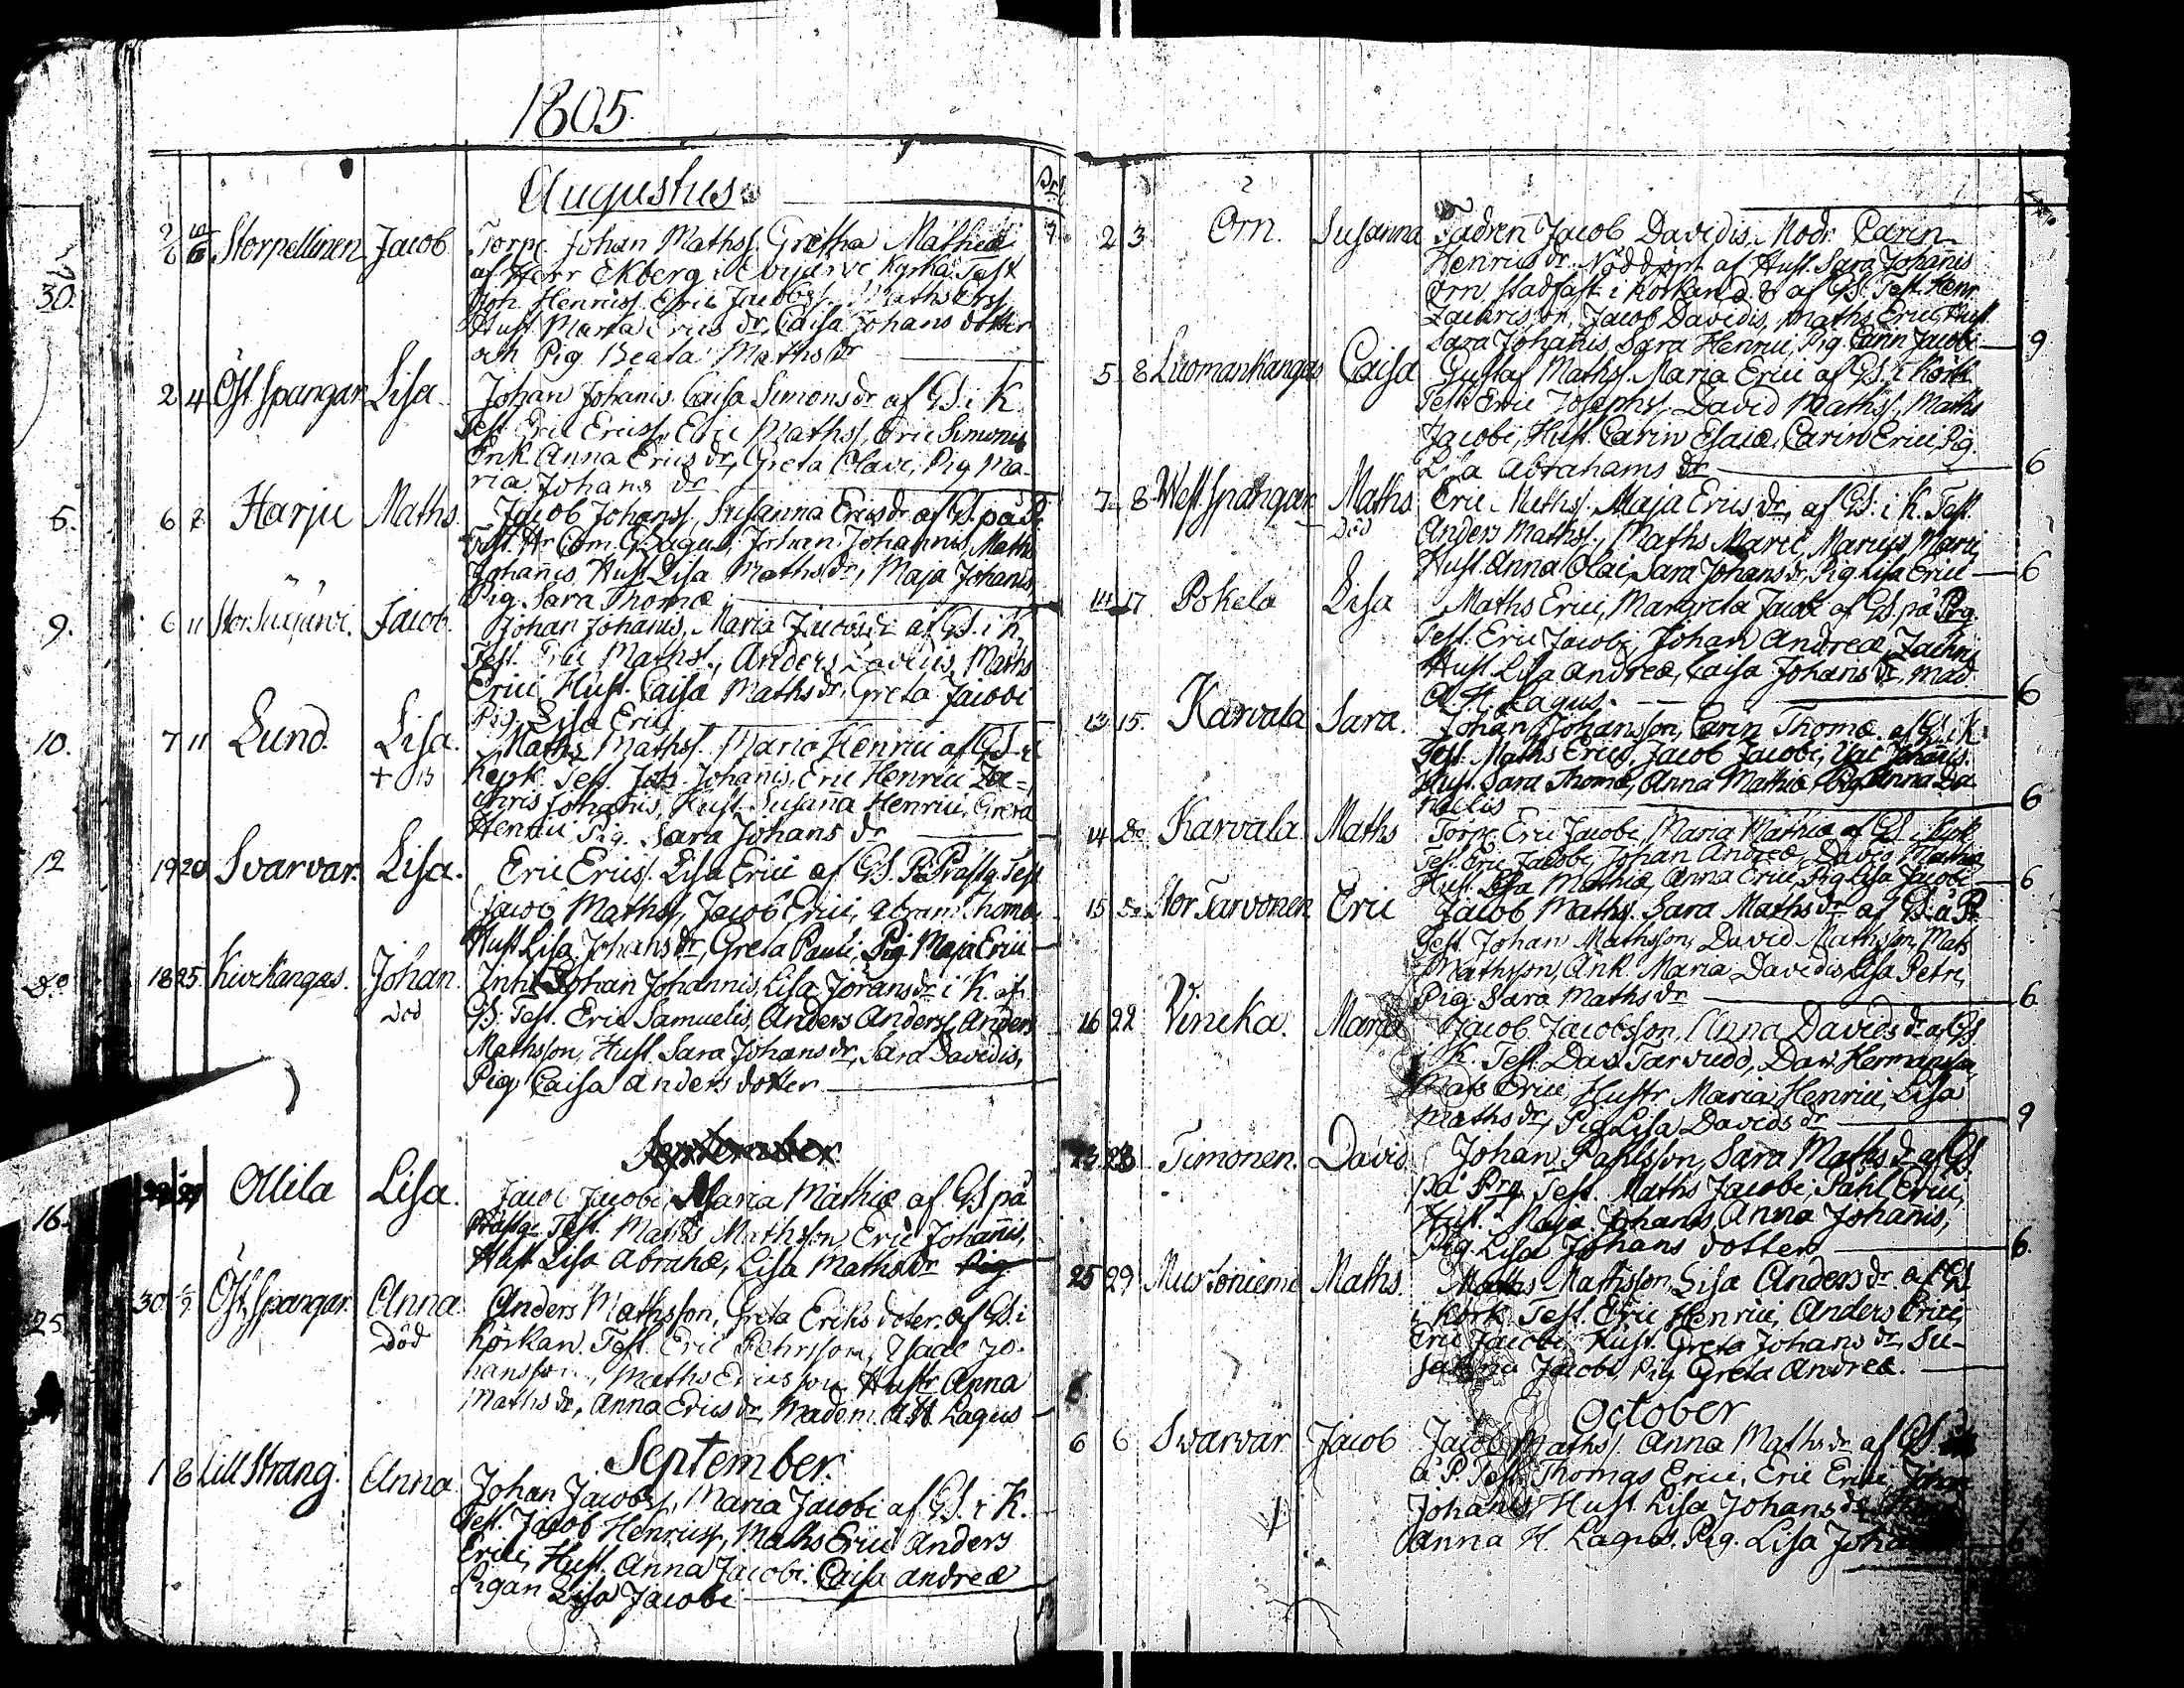 1805.
Augustus
Storpellinen Jacob Torp. Johan Mathss. Gretha Mathiæ
af Herr Ekberg i Evijärvi Kyrka Test
Joh. Henrics. Eric Jacobss. Maths Erss.
Hust Maria Erics dr, Caisa Johans dotter
och Pig Beata Maths dr
2 4 Öst Spangar Lisa Johan Johanis Caisa Simons dr af GS. i K.
Test Eric Ericss. Eric Mathss, Eric Simonis
Enk. Anna Erics dr, Greta Olavi, Pig Ma-
ria Johans dr
6 8 Harju Maths. Jacob Johanss, Susanna Erics dr af GS. på P.
Johan Johannis, Maths
Johanis, Hust. Lisa Mathsdr, Maja Johanis
Pig. Sara Thomæ
6 11 Jacob. Johan Johanis, Maria Jacobsdr af GS. i K.
Test. Eric Mathss., Anders Davidis, Maths
Erici, Hust. Caisa Mathsdr, Greta Jacobi
Pig. Lisa Erici
7 11 Lund. Lisa. Maths Mathss. Maria Henrici af GS. i
+ 13 Körk. Test. Joh. Johanis, Eric Henrici Za-
chris Johanis, Hust. Susana Henrici, Greta
Henrici Pig. Sara Johans dr
19 20 Svarvar. Lisa. Eric Ericss. Lisa Erici af GS. På Prästg. Test
Jacob Mathss, Jacob Erici, Abram Thomæ
Hust Lisa Johans dr, Greta Pauli, Pig. Maja Erici
18 25 Kivikangas. Johan Inh. Johan Johannis, Lisa Jörans dr i K. af
död GS: Test. Eric Samuelis, Anders Anderss, Anders
Mathsson, Hust. Sara Johans dr, Sara Davidis,
Pig Caisa Anders dotter
September
29 Ollila Lisa. Jacob Jacobi, Maria Mathiæ af GS på
Prästg. Test. Maths Mathsson, Eric Johanis,
Hust Lisa Abrahæ, Lisa Maths dr Pig.
30 Öst Spangar. Anna Anders Mathsson, Greta Eriks doter. af GS. i
Död Körkan. Test. Eric Pehrsson, Isaac Jo-
hansson, Maths Ericsson Hustr Anna
Maths dr, Anna Erics dr, Madem A. H. Lagus
September.
1 8 Lill Strang. Anna Johan Jacobss, Maria Jacobi af GS. i K.
Test. Jacob Henricss, Maths Erici Anders
Erici, Hust. Anna Jacobi. Caisa Andreæ
Pigan Lisa Jacobi
30.
5.
9.
10.
12
Do
16.
25
2 3 Orn. Susanna Fadren Jacob Davidis. Modr. Carin
Henrics dr. Nöddöpt af Hust. Sara Johanis
Orn, stadfäst i körkan d. 8 af GS. Test. Henr.
Zachrisson, Jacob Davidis, Maths Erici, Hust.
Sara Johanis, Sara Henrici, Pig. Carin Jacobi 9
5 8 Luomankangas Caisa Gustaf Mathss. Maria Erici af GS. i Körk
Test Eric Josephs, David Mathss, Maths
Jacobi, Hust. Carin Esaiæ, Carin Erici, Pig.
Lisa Abrahams dr 6
7 8 West Spangar Maths Eric Mathss. Maja Erics dr, af GS: i K. Test.
död Anders Mathss., Maths Marci, Marcus Marci,
Hust. Anna Olai, Sara Johans dr, Pig Lisa Erici 6
14 17 Pokela Lisa Maths Erici, Margreta Jacobi af GS. på Prg.
Test. Eric Jacobi, Johan Andreæ, Zachris
Hust. Lisa Andreæ, Caisa Johans dr, Mad.
A. H. Lagus. 6
13 15. Karvala Sara. Johan Johansson, Carin Thomæ af GS. i K:
Test. Maths Erici, Jacob Jacobi, Johanis.
Hust. Sara Thomæ, Anna Mathiæ Pig. Anna Da
nielis 6
14 Do Karvala Maths Torp. Eric Jacobi, Maria Mathiæ af GS. i Kyrk
Test. Eric Jacobi, Johan Andreæ, David Mathiæ
Hust. Lisa Mathiæ, Anna Erici, Pig Lisa Jacobi 6
15 Do Stor Tarvonen Eric Jacob Mathss. Sara Maths dr af GS. å P.
Test. Johan Mathsson, David Mathsson, Mats
Mathsson, Änk. Maria Davidis, Lisa Petri,
Pig. Sara Maths dr 6
16 22 Vineka. Maria Jacob Jacobsson, Anna Davids dr af GS
K. Test. Dav. Tarvudd, Dav. Hermansson,
Mats Erici, Hustr Maria Henrici, Lisa
Maths dr, Pig Lisa Davids dr 9
23 23 Timonen. David Johan Pahlsson, Sara Maths dr af GS
på Prg. Test. Maths Jacobi, Pahl Erici,
Hust. Maja Johanis, Anna Johanis,
Pig. Lisa Johans dotter 6.
25 29 Mustoniemi Maths. Maths Mathsson, Lisa Anders dr af GS
i Körk. Test. Eric Henrici, Anders Erici,
Eric Jacobi, Hust. Greta Johans dr, Su-
sanna Jacobi, Pig Greta Andreæ.
October
6 6 Svarvar Jacob Jacob Mathss. Anna Maths dr af GS
å P. Test. Thomas Erici, Eric Erici, Johan
Johanis, Hust. Lisa Johans dr
Anna H. Lagus. Pig. Lisa 6